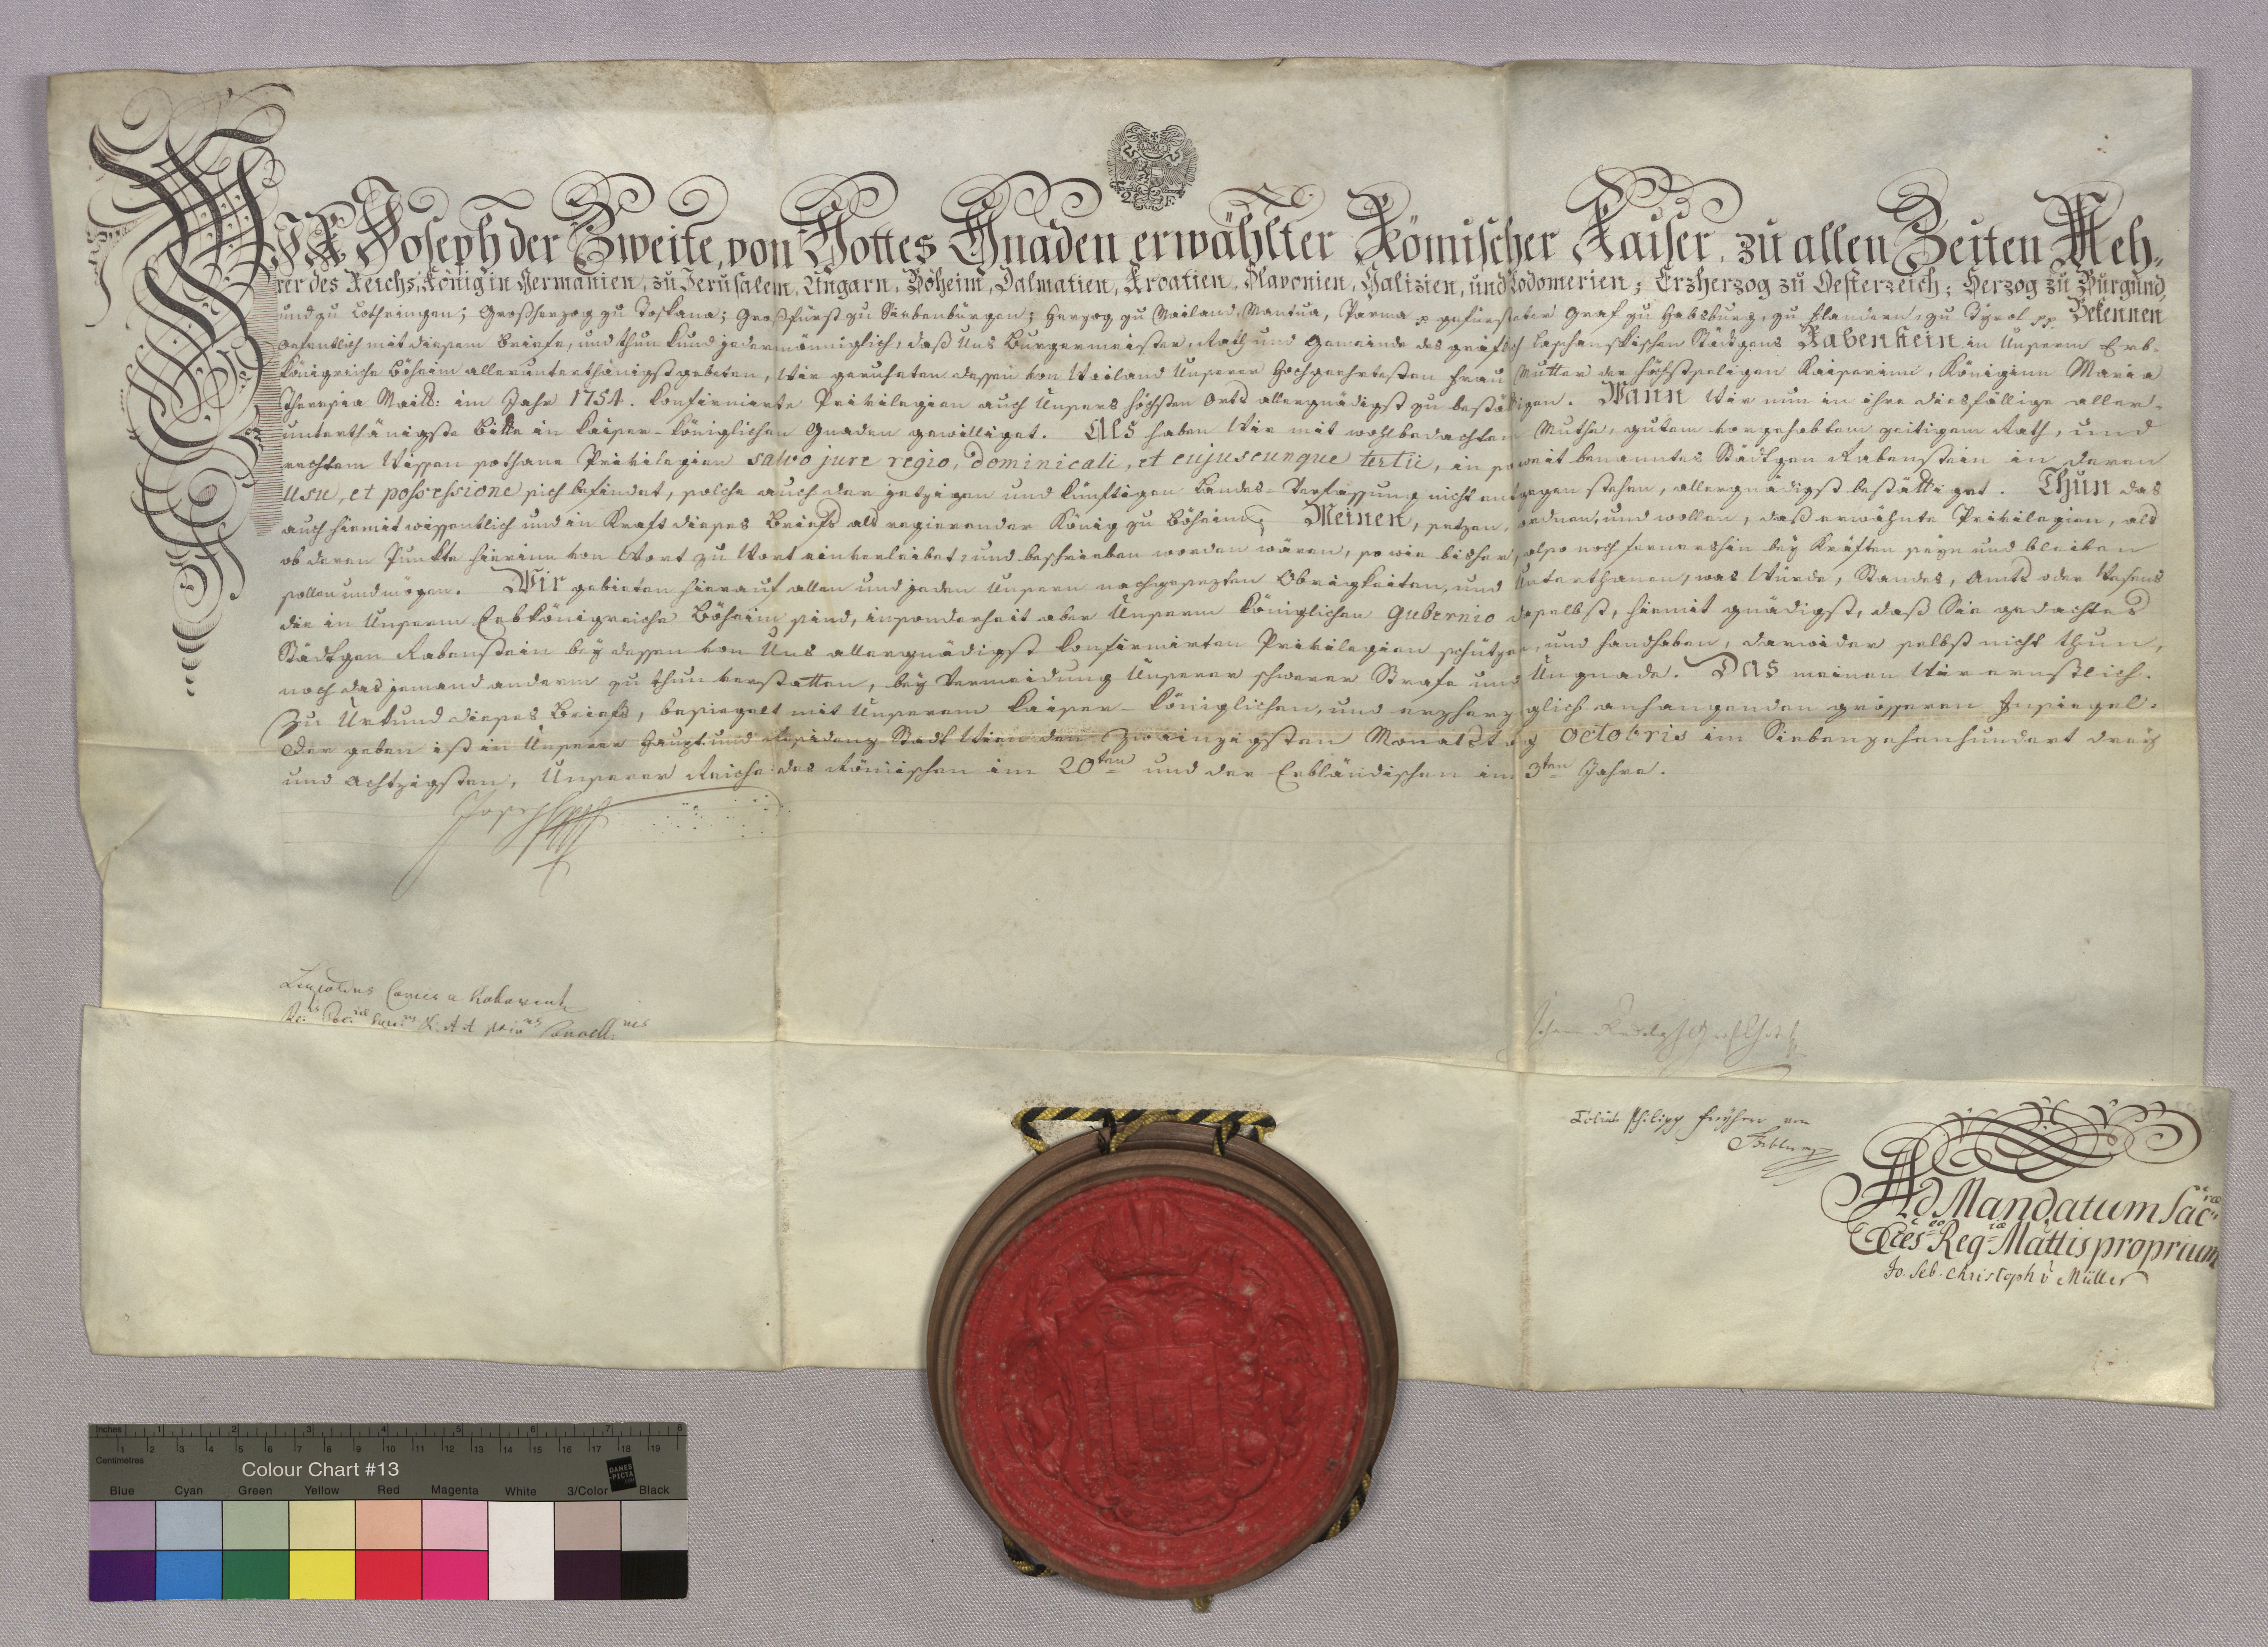 WIR Joseph der Zweite, von Gottes Gnaden erwählter Römischer Kaiser, zu allen Zeiten Meh-
rer des Reichs; König in Germanien, zu Jerusalem, Ungarn, Böheim, Dalmatien, Kroatien, Slavonien, Galizien, und Lodomerien; Erzherzog zu Oesterreich; Herzog zu Burgund,
und zu Lothringen; Großherzog zu Toskana; Großfürst zu Siebenbürgen; Herzog zu Mailand, Mantua, Parma p gefürsteter Graf zu Habsburg, zu Flandern, zu Tyrol pp Bekennen
oefentlich mit diesem Briefe, und thun kund jedermänniglich, daß Uns Burgermeister, Rath und Gemeinde des gräflich Laschanskischen Städtgens Rabenstein in Unserm Erb-
königreiche Böheim allerunterthänigst gebeten, Wir geruheten dessen von Weiland Unserer Hochgeehrtesten Frau Mutter der höchstseligen Kaiserinn, Königinn Maria
Theresia Maitt: im Jahr 1754. konfirmirte Privilegien auch Unsers höchsten Orts allergnädigst zu bestättigen. Wann Wir nun in ihre diesfällige aller-
unterthänigste Bitte in kaiser-königlichen Gnaden gewilliget. Als haben Wir mit wohlbedachtem Muthe, gutem vorgehabtem zeitigem Rath, und
rechtem Wissen sothane Privilegien salvo jure regio, dominicali, et cujuscunque tertii, in soweit benanntes Städtgen Rabenstein in deren
usu, et possessione sich befindet, solche auch der jetzigen und künftigen Landes-Verfassung nicht entgegen stehen, allergnädigst bestättiget. Thun das
auch hiemit wissentlich und in Kraft dieses Briefs als regierender König zu Böheim; Meinen, setzen, ordnen, und wollen, daß erwähnte Privilegien, als
ob deren Punkte hierinn von Wort zu Wort einverleibet, und beschrieben worden wären, so wie bisher, also noch fernershin bey Kräften seyn und bleiben
sollen und mögen. Wir gebieten hierauf allen und jeden Unsern nachgesezten Obrigkeiten, und Unterthanen, was Würde, Standes, Amts oder Wesens
die in Unserm Erbkönigreiche Böheim sind, insonderheit aber Unserm königlichen Gubernio daselbst, hiemit gnädigst, daß Sie gedachtes
Städtgen Rabenstein bey dessen von Uns allergnädigst konfirmirten Privilegien schützen, und handhaben, darwider selbst nicht thun,
noch das jemand anderm zu thun verstatten, bey Vermeidung Unserer schweren Strafe und Ungnade. Das meinen Wir ernstlich.
Zu Urkund dieses Briefs, besiegelt mit Unserem kaiser-königlichen, und erzherzoglich anhangenden grösseren Insiegel.
Der geben ist in Unserer Haupt und Residenz Stadt Wien den zwainzigsten Monatstag Octobris im Siebenzehenhundert drey
und achtzigsten, Unserer Reiche des Römischen im 20ten und der Erbländischen im 3ten Jahre.
Joseph
Leopoldus Comes a Kolowrat
Johann Rudolph Graf Chotek
Tobias Philipp Freyherr von
Gebler
Ad Mandatum Sac:rae
Caes:eo Reg:ae Mattis proprium
Jo. Seb. Christoph v Müller
Inches 1 2 3 4 5 6 7 8
Centimetres 1 2 3 4 5 6 7 8 9 10 11 12 13 14 15 16 17 18 19
Colour Chart #13
DANES
PICTA
.COM
Blue Cyan Green Yellow Red Magenta White 3/Color Black